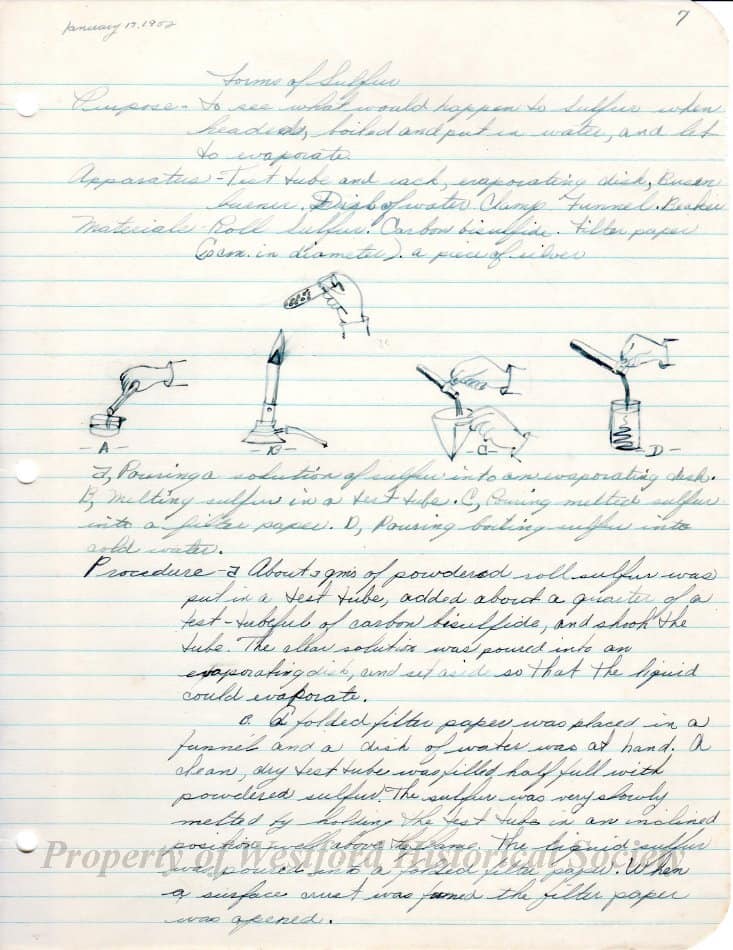 January 17, 1902
7
Forms of Sulfur
Purpose - To see what would happen to sulfur when
headed, boiled and put in water, and let
to evaporate.
Apparatus - Test tube and rack, evaporating disk, Busen
burner. Disk of water Clamp. Funnel. Beaker
Materials - Roll Sulfur. Carbon bisulfide. Filter paper
cm. in diameter). a piece of silver
- A -
- B -
- C -
- D -
a, Pouring a solution of sulfur into an evaporating desk.
B, Melting sulfur in a test tube. C, Pouring melted sulfur
into a filter paper. D, Pouring boiling sulfur into
cold water.
Procedure - a About 3 gms of powdered roll sulfur was
put in a test tube, added about a quarter of a
test-tubeful of carbon bisulfide, and shook the
tube. The clear solution was poured into an
evaporating dish, and set aside so that the liquid
could evaporate.
B. A folded filter paper was placed in a
funnel and a dish of water was at hand. A
clean, dry test tube was filled half full with
powdered sulfur. The sulfur was very slowly
melted by holding the test tube in an inclined
position well above the flame. The liquid sulfur
Property of Westford Historical Society
was poured into a folded filter paper. When
a surface crust was formed the filter paper
was opened.